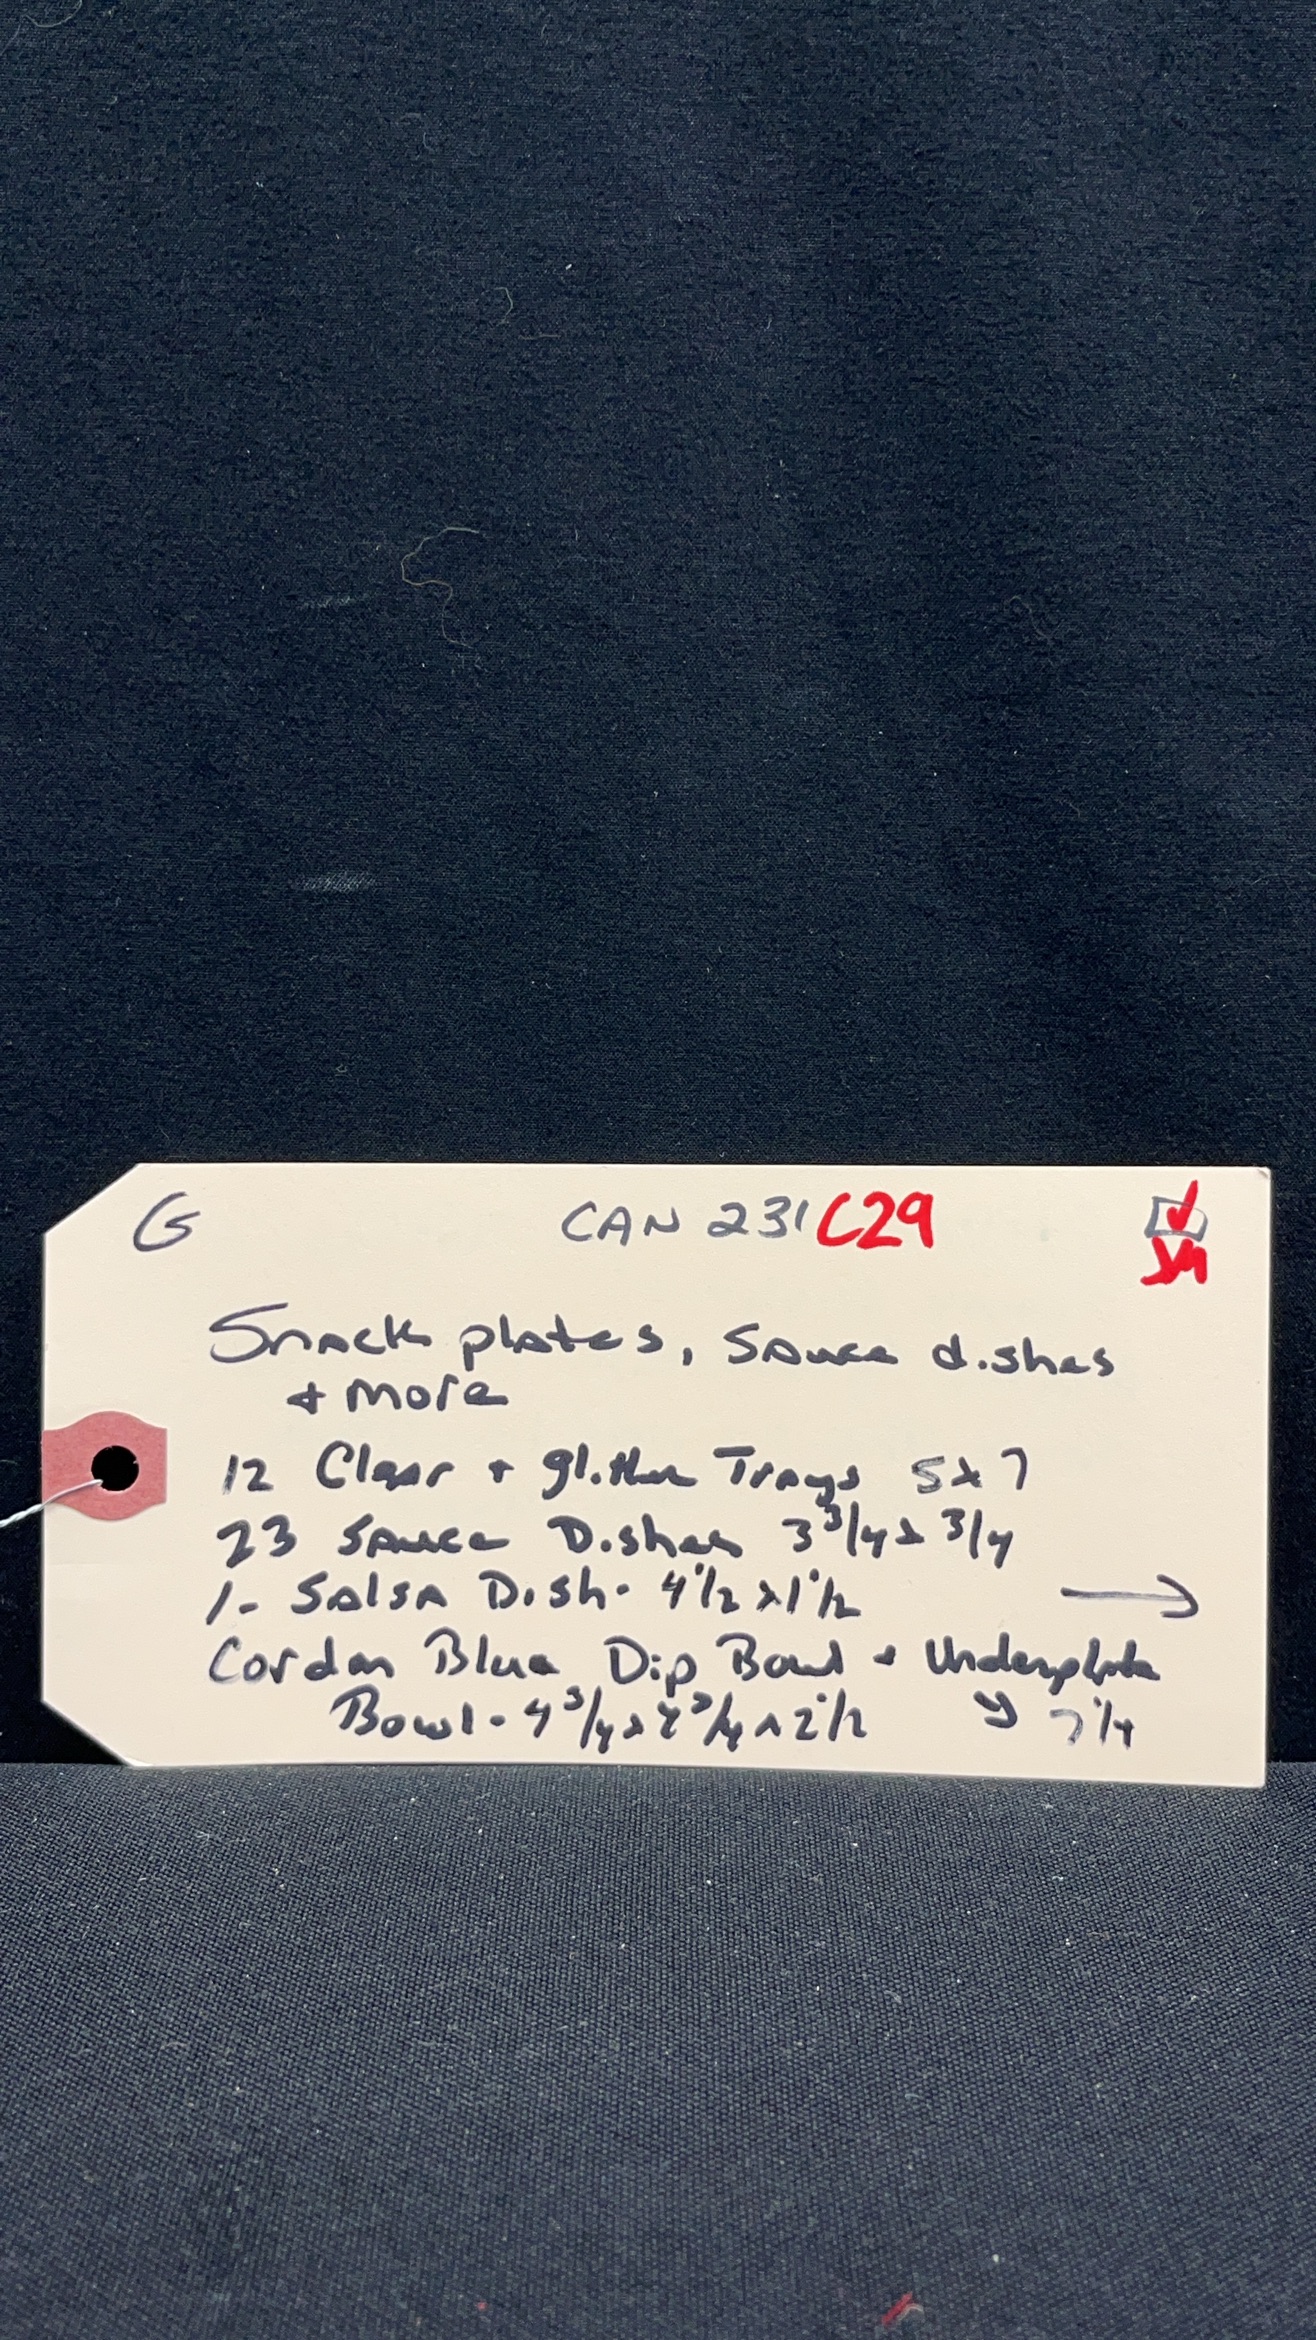 G CAN 231 C29
Snack plates, Sauce dishes
+ more
12 Clear + glitter Trays 5x7
23 Sauce Dishes 3 3/4 x 3/4
1- Salsa Dish- 4 1/2 x 1 1/2 →
Cordon Blue Dip Bowl + Underplate
Bowl- 4 3/4 x 4 3/4 x 2 1/2 7 1/4